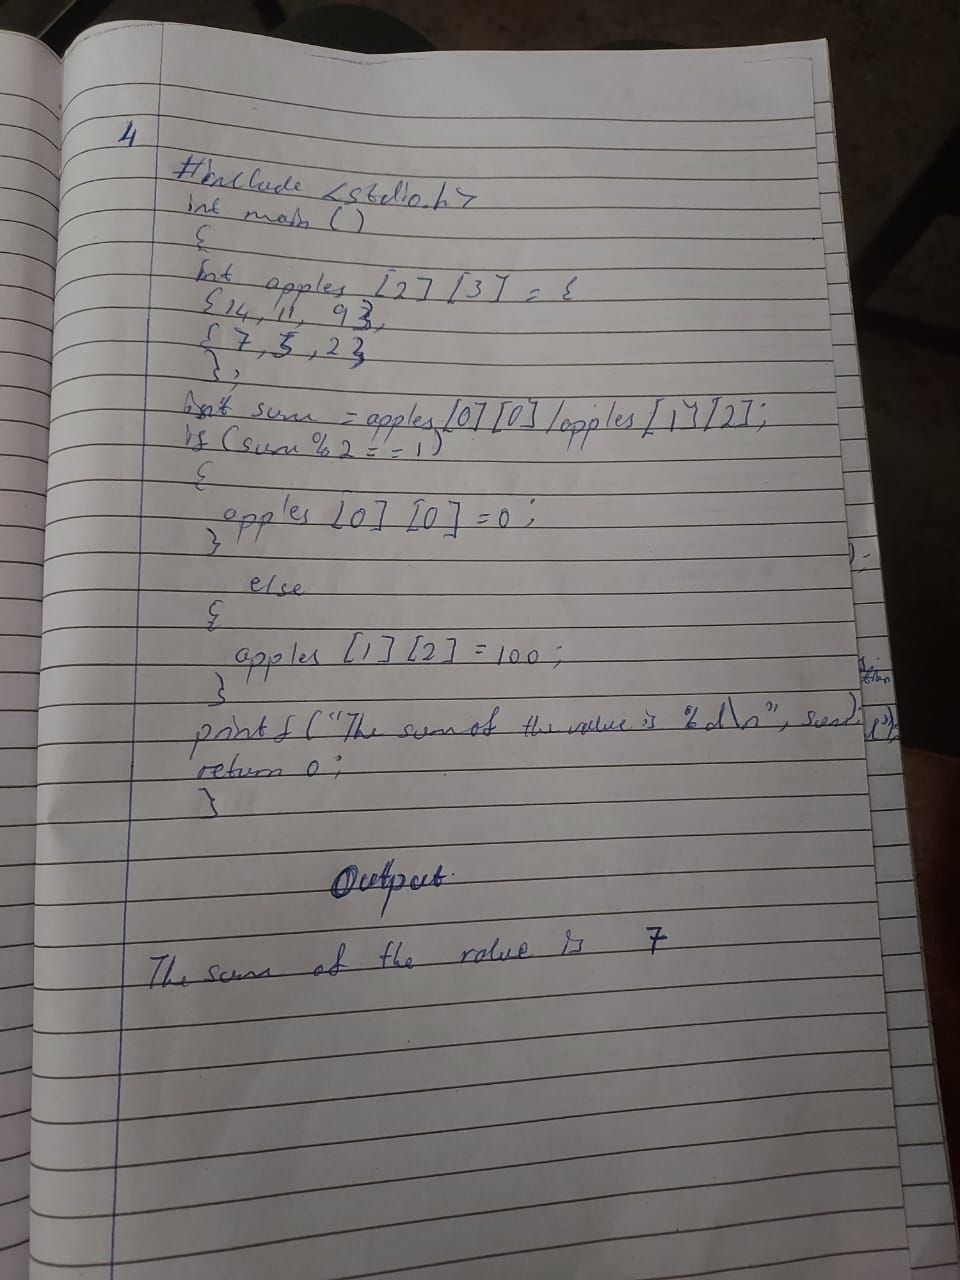 4
#include <stdio.h>
int main ()
{
int apples [2] [3] = {
{14, 11, 9},
{ 7, 5, 2}
};
int sum = apples [0] [0] / apples [1] [2];
if (sum % 2 = = 1)
{
apples [0] [0] = 0 ;
}
else
{
apples [1] [2] = 100 ;
}
printf ("The sum of the value is %d\n", sum);
return 0 ;
}
Output
The sum of the value is 7